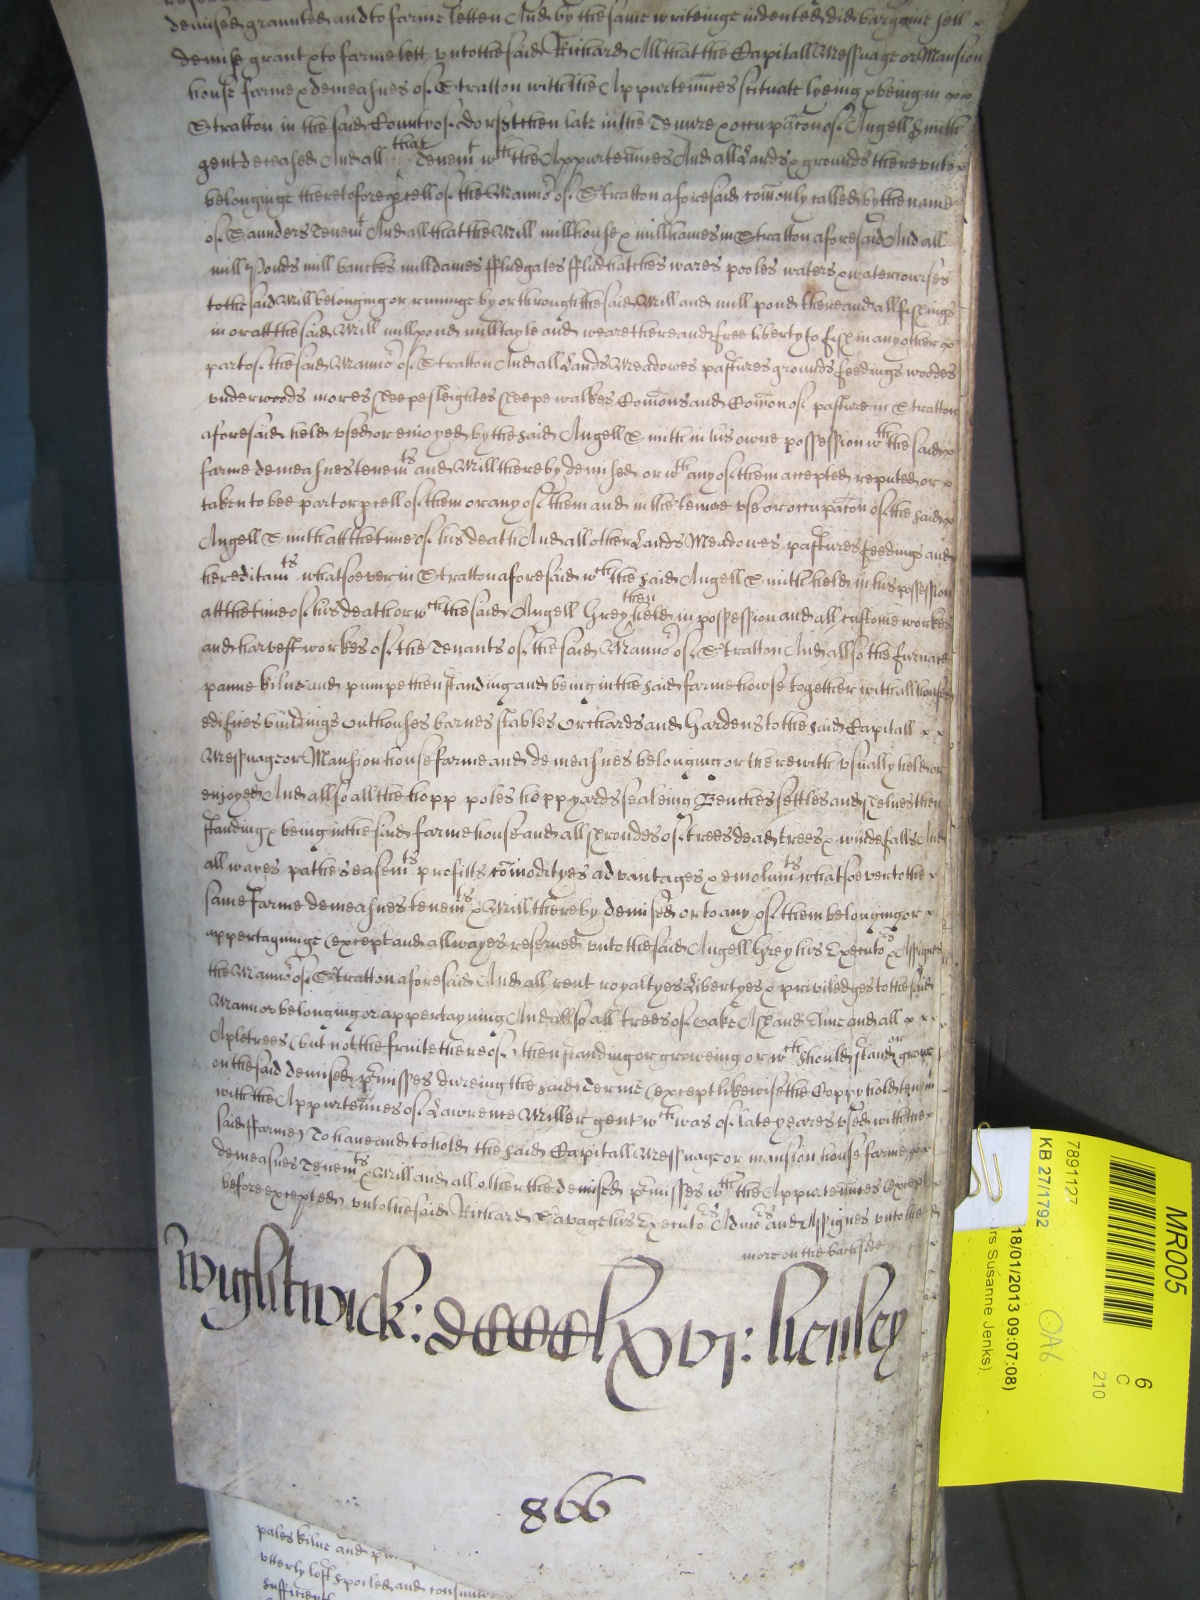 demised graunted and to farme letten And by the same writeinge indented did bargaine sell x
demise grant x to farme lett vnto the said Richard All that the Capitall Messuage or Mansion
house farme x demeasnes of Stratton with the Appurtennces scituate lyeing x being in xx
Stratton in the said County of Dorstt then late in the Tenure x occupacon of Angell Smith
gent deceased And all that Tenemt wth the Appurtennces And all Lands x grounds therevnto x
belonginge theretofore pcell of the Mannor of Stratton aforesaid comonly called by the name
of Saunders Tenemt And all that the Mill millhouse x millhames in Stratton aforesaid And all
mill Ponds mill banckes milldames ffludgates ffludhatches wares pooles waters x watercourses
to the said Mill belonging or runninge by or through the said Mill and mill pond there and all fishings
in or att the said Mill millpond milltayle and weare there and free liberty to fish in any other x
part of the said Mannor of Stratton And all Lands Meadowes pastures grounds feedings woodes
vnderwoods mores sheepesleightes sheepe walkes Comons and Comon of pasture in Stratton
aforesaid held vsed or enioyed by the said Angell Smith in his owne possession wth the said x
farme demeasnes tenemts and Mill thereby demised or wth any of them accepted reputed or x
taken to bee part or pcell of them or any of them and in the tenure vse or occupacon of the said x
Angell Smith att the time of his death And all other Lands Meadowes pastures feedings and
hereditamts whatsoever in Stratton aforesaid wch the said Angell Smith held in his possession
att the time of his death or wch the said Angell Grey then held in possession and all custome workes
and harvest workes of the Tenants of the said Mannor of Stratton And allso the furnace
panne kilne and pumpe then standing and being in the said farme howse together with all houses
edifices buildings outhouses barnes stables Orchards and Gardens to the said Capitall x x
Messuage or Mansion house farme and demeasnes belonging or therewith vsually held or
enjoyed And allso all the hopp poles hoppyards sealeing Benches settles and shelves then
standing x being in the said farme house and all shroudes of trees dead trees x windefalls And
all wayes pathes easemts profitts comodityes advantages x emolumts whatsoever to the x
same farme demeasnes tenemts x Mill thereby demised or to any of them belonging or x
appertayninge (except and allwayes reserved vnto the said Angell Grey his Executors x Assignes
the Mannor of Stratton aforesaid And all rent royaltyes Libertyes x priviledges to the said
Mannor belonging or appertayning And allso all trees of Oake Ash and Elme and all x x
Apletrees (but not the fruite thereof) then standing or groweing or wch should stand or growe
on the said demised prmisses dureing the said Terme (except likewise the Coppyhold tenemt
with the Appurtennces of Lawrence Miller gent wch was of late yeares vsed with the x
said ffarme) To have and to hold the said Capitall Messuage or mansion house farme
demeasnes Tenemts Mill and all other the demised prmisses wth the Appurtennces (except
before excepted) vnto the said Richard Savage his Executors Admrs and Assignes vnto the
more on the backside
Wightwick: dccclxvj: henley
866
pales kilne and
vtterly lost spoiled and consumed
sufficient
MR005
6
C
210
7891127
KB 27/1792
OA6
18/01/2013 09:07:08)
rs Susanne Jenks)